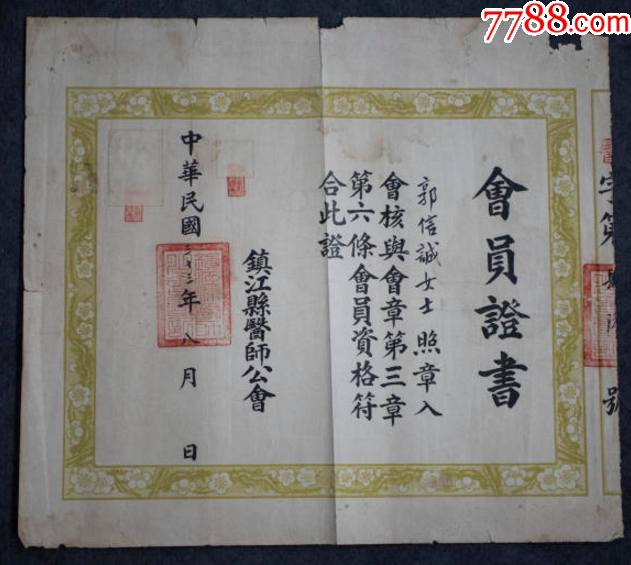 7788.com
字第號
會員證書
郭信誠女士照章入
會核與會章第三章
第六條會員資格符
合此證
鎮江縣醫師公會
中華民國三十三年八月日